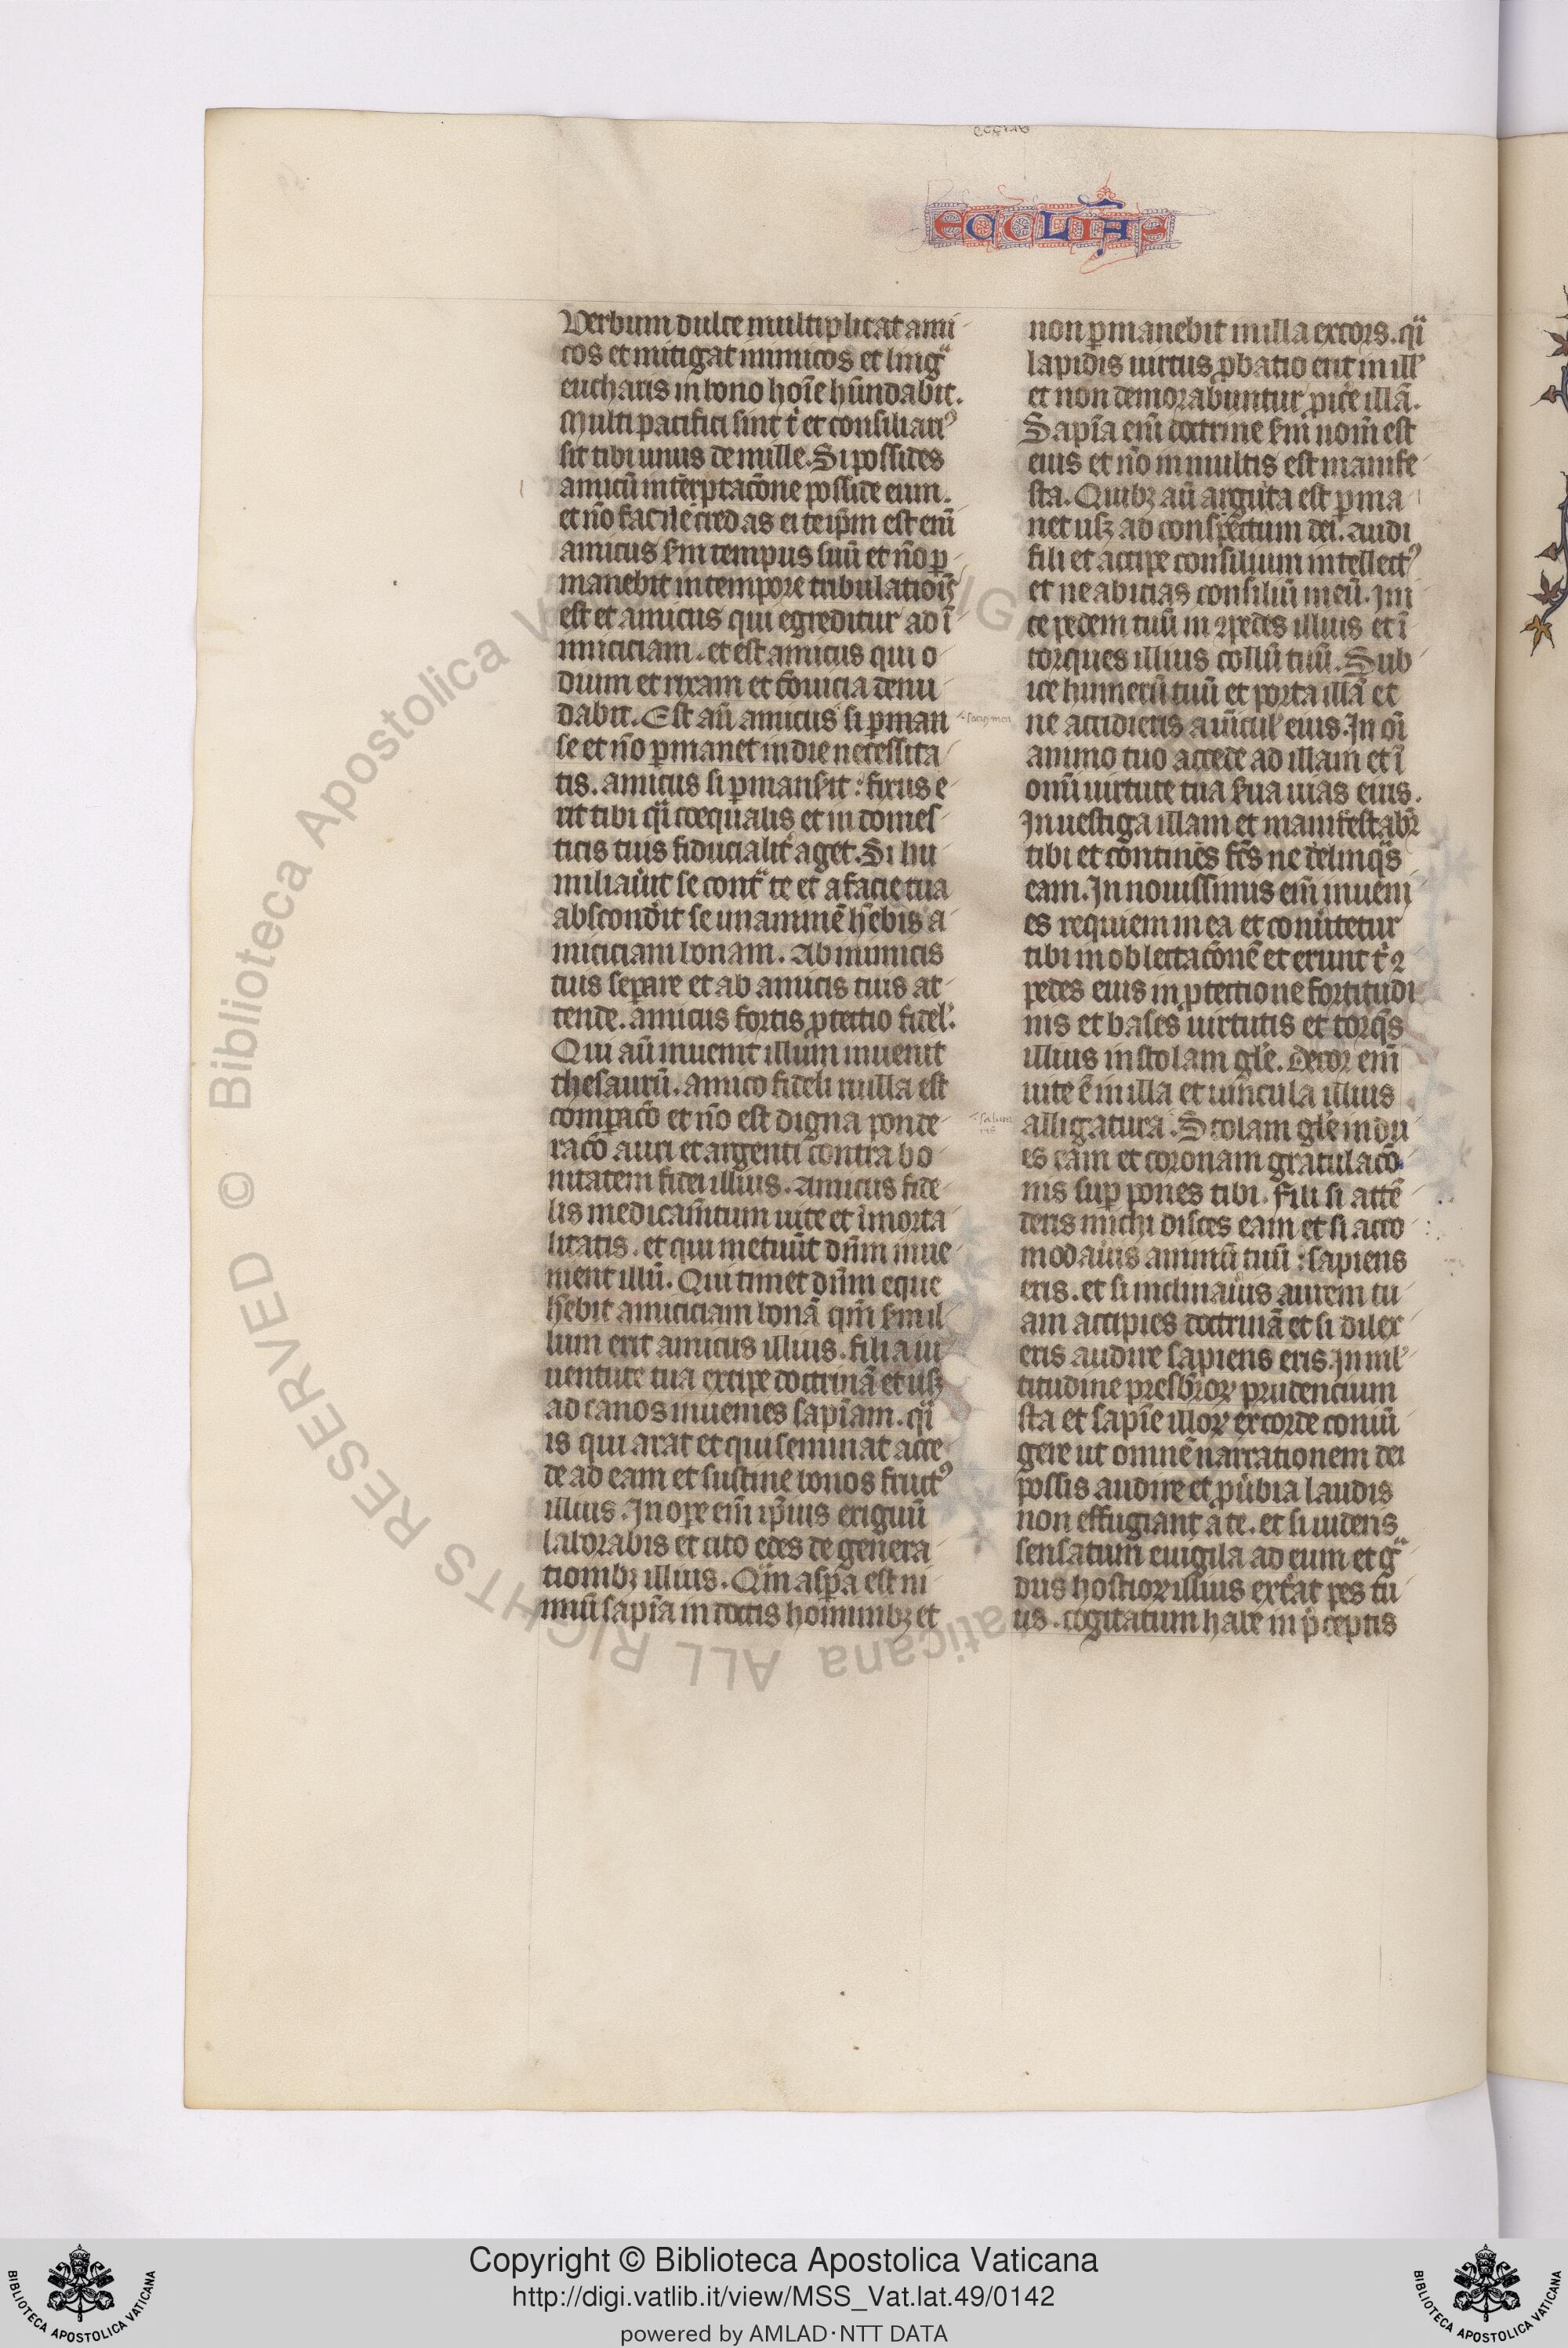 ECCLIAS
Verbum dulce multiplicat ami
cos et mitigat inimicos et lingᵃ
eucharis in bono hoīe hūndabit.
Multi pacifici sint t̄ et consiliariꝰ
sit tibi unus de mille. Si possides
amicū in tēptacōne posside eum.
et nō facile credas ei teip̄m est enī
amicus scd̄m tempus suū et nō ꝑ
manebit in tempore tribulatiōis
est et amicus qui egreditur ad ī
imiciciam. et est amicus qui o
dium et rixam et cōuicia denu
dabit. Est aū amicus si ꝑman
se et nō ꝑmanet in die necessita
tis. amicus si ꝑmanserit : fixus e
rit tibi qⁱ coequalis et in domes
ticis tuis fiducialit̄ aget. Si hu
miliaūit se contᵃ te et a facie tua
absconderit se unanimē hēbis a
miciciam bonam. Ab inimicis
tuis separe et ab amicis tuis at
tende. amicus fortis ꝓtectio fidel̓.
Qui aū inuenit illum inuenit
thesaurū. amico fideli nulla est
comparacō et nō est digna ponde
racō auri et argenti contra bo
nitatem fidei illius. Amicus fide
lis medicam̄tum uite et īmorta
litatis. et qui metuūt dn̄m inue
nient illū. Qui timet dn̄m eque
hēbit amiciciam bonā qm̄ scd̄m il
lum erit amicus illius. fili a iu
uentute tua excipe doctrinā et usꝫ
ad canos inuenies sapīam. qⁱ
is qui arat et qui seminat acce
de ad eam et sustine bonos fructꝰ
illius. In opere enī ip̄ius exiguū
laborabis et cito edes de genera
tionibꝫ illius. Qᵃm asp̄a est ni
miū sapīa indoctis hominibꝫ et
non ꝑmanebit in illa excors. qⁱ
lapidis uirtus ꝓbatio erit in ill̓
et non demorabuntur ꝓicere illā.
Sapīa enī doctrine scd̄m nom̄ est
eius et nō in multis est manife
sta. Quibꝫ aū agnita est ꝑma
net usꝫ ad conspectum dei. Audi
fili et accipe consilium intellectꝰ
et ne abicias consiliū meū. Ini
ce pedem tuū in ꝯpedes illius et ī
torques illius collū tuū. Sub
ice humerū tuū et porta illā et
ne accidieris a uīcul̓ eius. In oī
animo tuo accede ad illam et ī
omī uirtute tua serua uias eius.
Inuestiga illam et manifestabr̄
tibi et continēs fc̄s ne delinqᵃs
eam. In nouissimis enī inueni
es requiem in ea et conūtetur
tibi in oblectacōnē et erunt t̄ ꝯ
pedes eius in ꝓtectione fortitudi
nis et bases uirtutis et torqᵉs
illius in stolam glē. Decor enī
uite ē in illa et uincula illius
alligatura. Stolam glē indu
es eam et coronam gratulacō
nis sup pones tibi. Fili si attē
deris michi disces eam et si acco
modaūis animū tuū : sapiens
eris. et si inclinaūis aurem tu
am accipies doctrinā et si dilex
eris audire sapiens eris. In ml̓
titudine presbr̄oꝝ prudencium
sta et sapīe illoꝝ ex corde coniū
gere ut omnē narrationem dei
possis audire et ꝓūbia laudis
non effugiant a te. et si uideris
sensatum euigila ad eum et gᵃ
dus hostioꝝ illius extāt pes tu
us. cogitatum habe in p̄ceptis
© Biblioteca Apostolica Vaticana ALL RIGHTS RESERVED
Copyright © Biblioteca Apostolica Vaticana
http://digi.vatlib.it/view/MSS_Vat.lat.49/0142
powered by AMLAD·NTT DATA
BIBLIOTECA APOSTOLICA VATICANA
BIBLIOTECA APOSTOLICA VATICANA